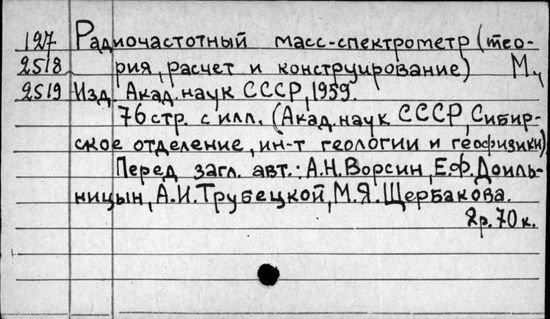 127 Радиочастотный масс-спектрометр (тео-
2518 рия, расчет и конструирование) М.,
2519 Изд. Акад. наук СССР, 1959.
76 стр. с илл. (Акад. наук СССР, Сибир-
ское отделение, ин-т геологии и геофизики)
Перед загл. авт.: А.Н. Ворсин, Е.Ф. Доиль-
ницын, А.И. Трубецкой, М.Я. Щербакова.
2р. 70 к.